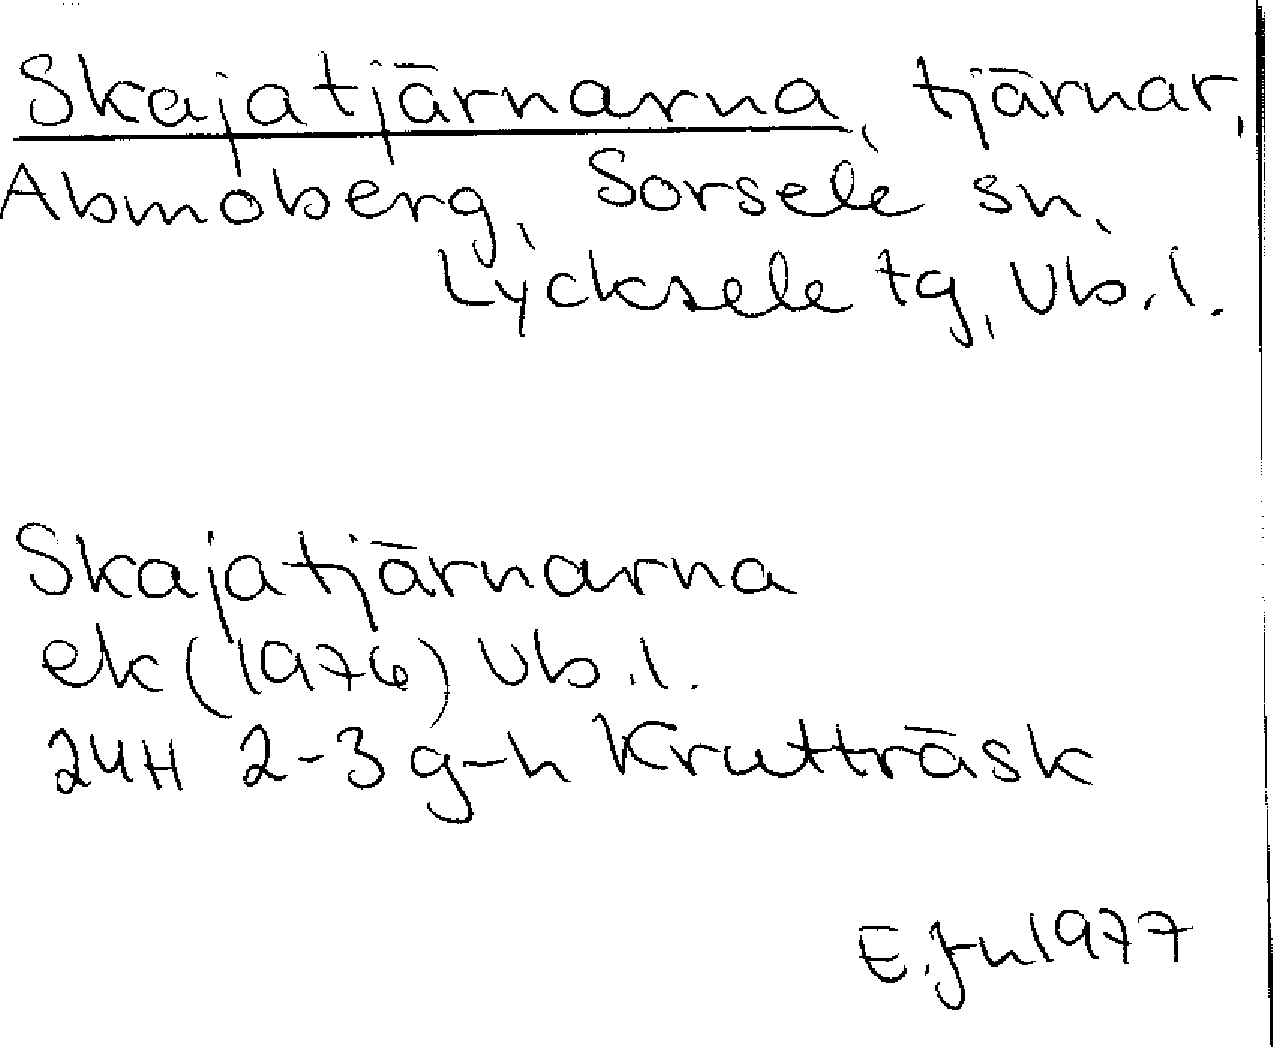 Skajatjärnarna, tjärnar,
Abmoberg, Sorsele sn,
Lycksele tg, Vb. l.
Skajatjärnarna
ek (1976) Vb. l.
24H 2-3 g-h Krutträsk
E. 1977